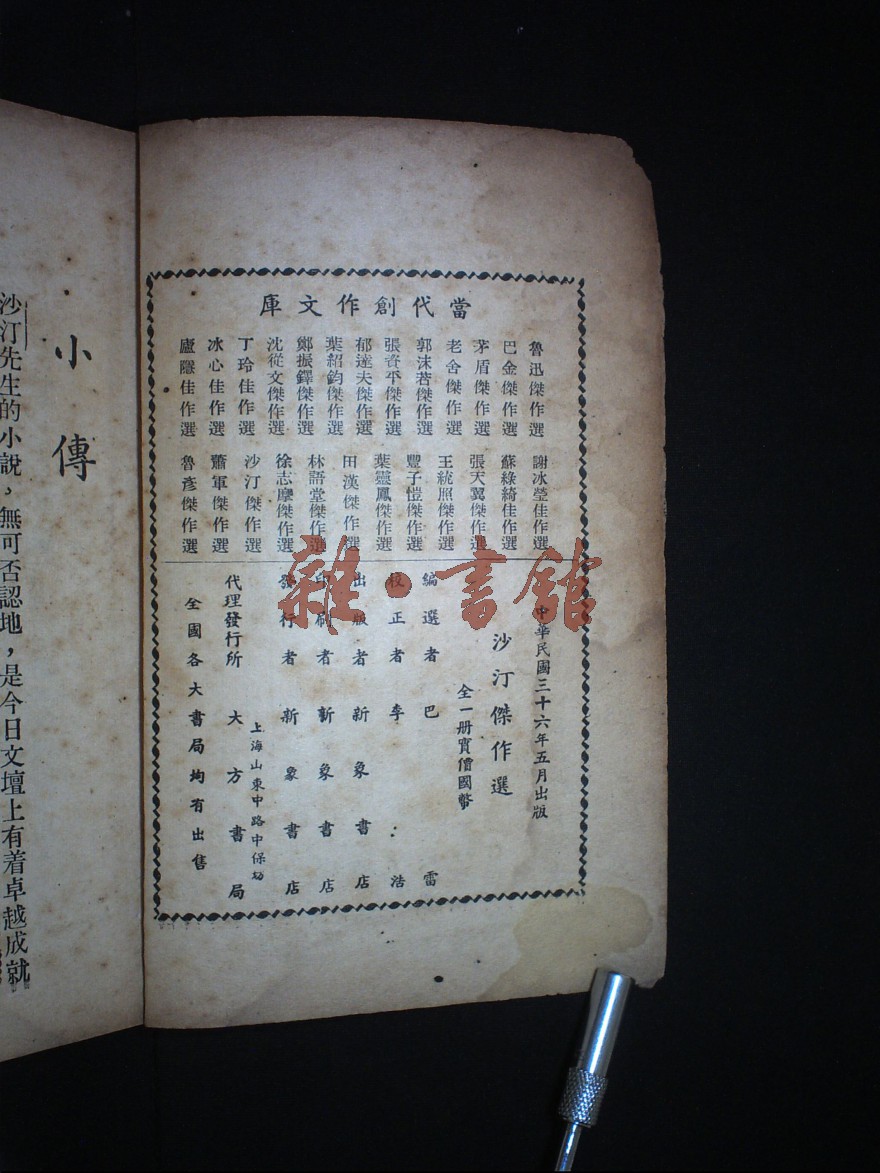 當代創作文庫
魯迅傑作選
巴金傑作選
茅盾傑作選
老舍傑作選
郭沫若傑作選
張資平傑作選
郁達夫傑作選
葉紹鈞傑作選
鄭振鐸傑作選
沈從文傑作選
丁玲佳作選
冰心佳作選
廬隱佳作選
謝冰瑩佳作選
蘇綠綺佳作選
張天翼傑作選
王統照傑作選
豐子愷傑作選
葉靈鳳傑作選
田漢傑作選
林語堂傑作選
徐志摩傑作選
沙汀傑作選
蕭軍傑作選
魯彥傑作選
中華民國三十六年五月出版
沙汀傑作選
全一册實價國幣
編選者 巴雷
校正者 李浩
出版者 新象書店
印刷者 新象書店
發行者 新象書店
上海山東中路中保坊
代理發行所 大方書局
全國各大書局均有出售
小傳
沙汀先生的小說，無可否認地，是今日文壇上有着卓越成就
雜·書館